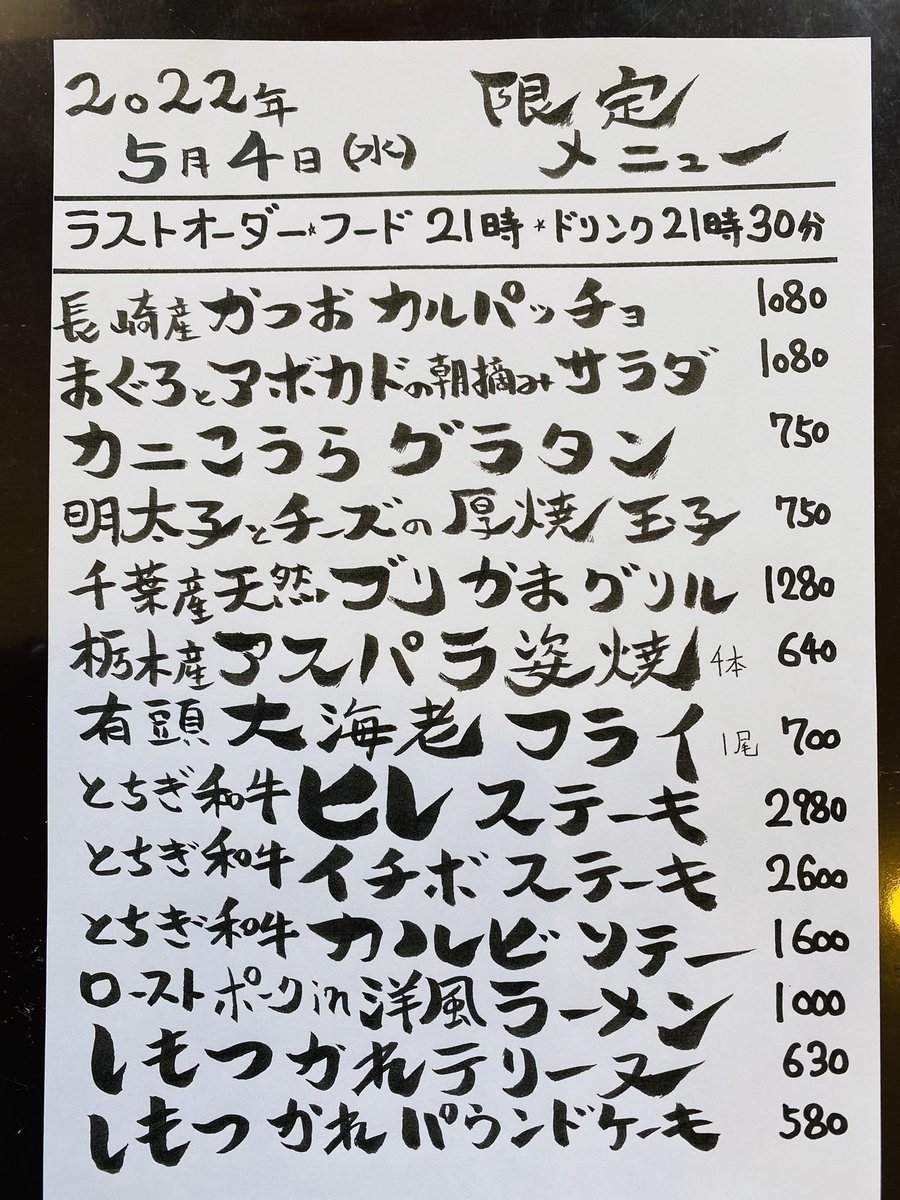 2022年
限定
5月4日(水)
メニュー
ラストオーダー*フード21時*ドリンク21時30分
長崎産かつおカルパッチョ 1080
まぐろとアボカドの朝摘みサラダ 1080
カニこうらグラタン 750
明太子とチーズの厚焼玉子 750
千葉産天然ブリかまグリル 1280
栃木産アスパラ姿焼 4本 640
有頭大海老フライ 1尾 700
とちぎ和牛ヒレステーキ 2980
とちぎ和牛イチボステーキ 2600
とちぎ和牛カルビソテー 1600
ローストポークin洋風ラーメン 1000
しもつかれテリーヌ 630
しもつかれパウンドケーキ 580